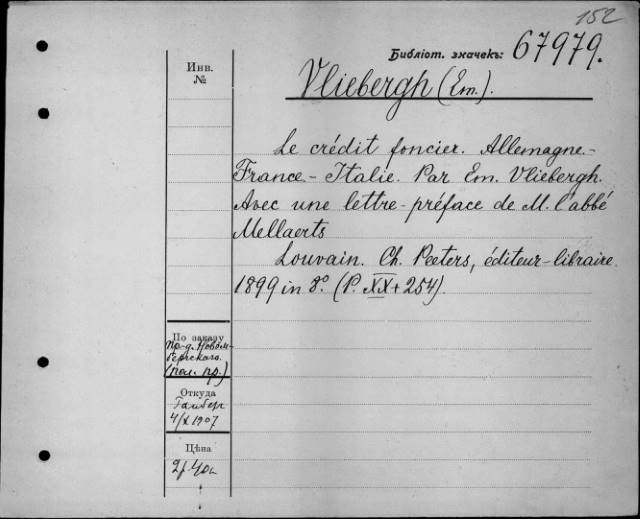 152
Библіот. значекъ: 67979.
Инв.
№
Vliebergh (Em.).
Le crédit foncier. Allemagne.-
France.- Italie. Par Em. Vliebergh.
Avec une lettre-préface de M. l'abbé
Mellaerts
Louvain. Ch. Peeters, éditeur-libraire.
1899 in 8º. (P. XX + 254).
По заказу
(пол. пр.)
Откуда
4/X 1907
Цѣна